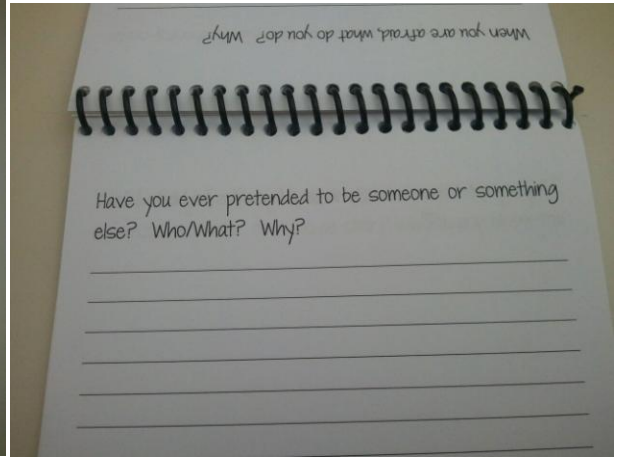 When you are afraid, what do you do? Why?
Have you ever pretended to be someone or something
else? Who/What? Why?